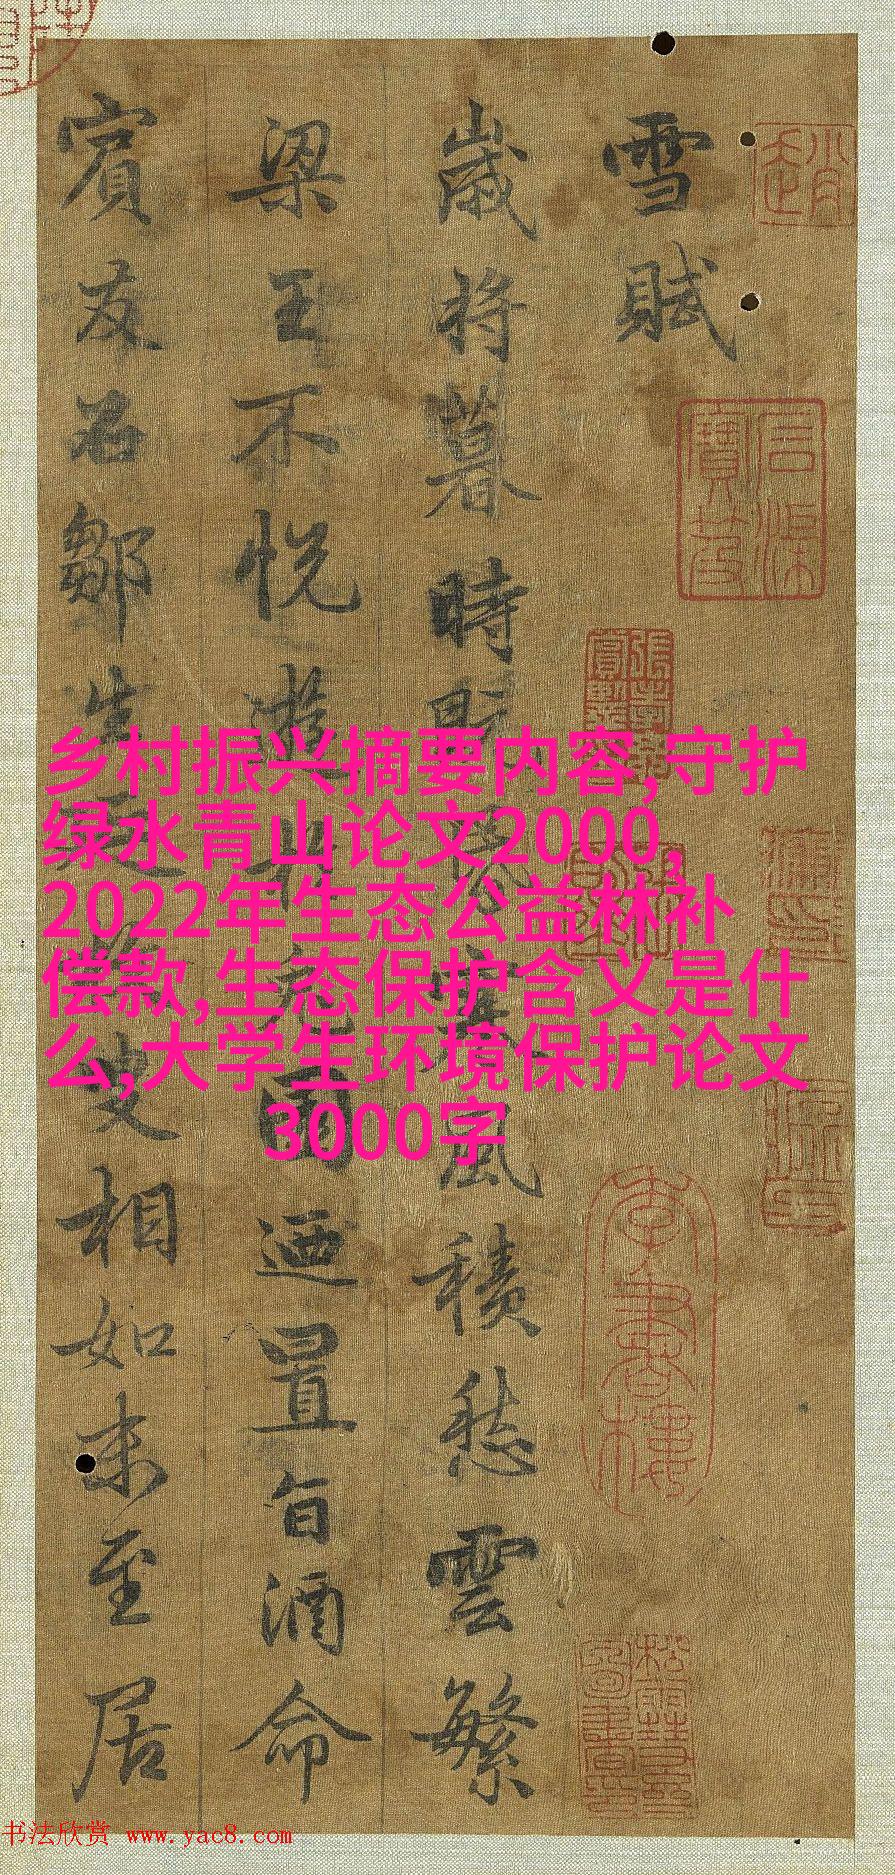 雪賦
歲将暮時既昏寒風積愁雲繁
梁王不悅遊於兔園迺置旨酒命
賓友召鄒生延枚叟相如末至居
乡村振兴摘要内容,守护
绿水青山论文2000,
2022年生态公益林补
偿款,生态保护含义是什
么,大学生环境保护论文
3000字
书法欣赏 www.yac8.com